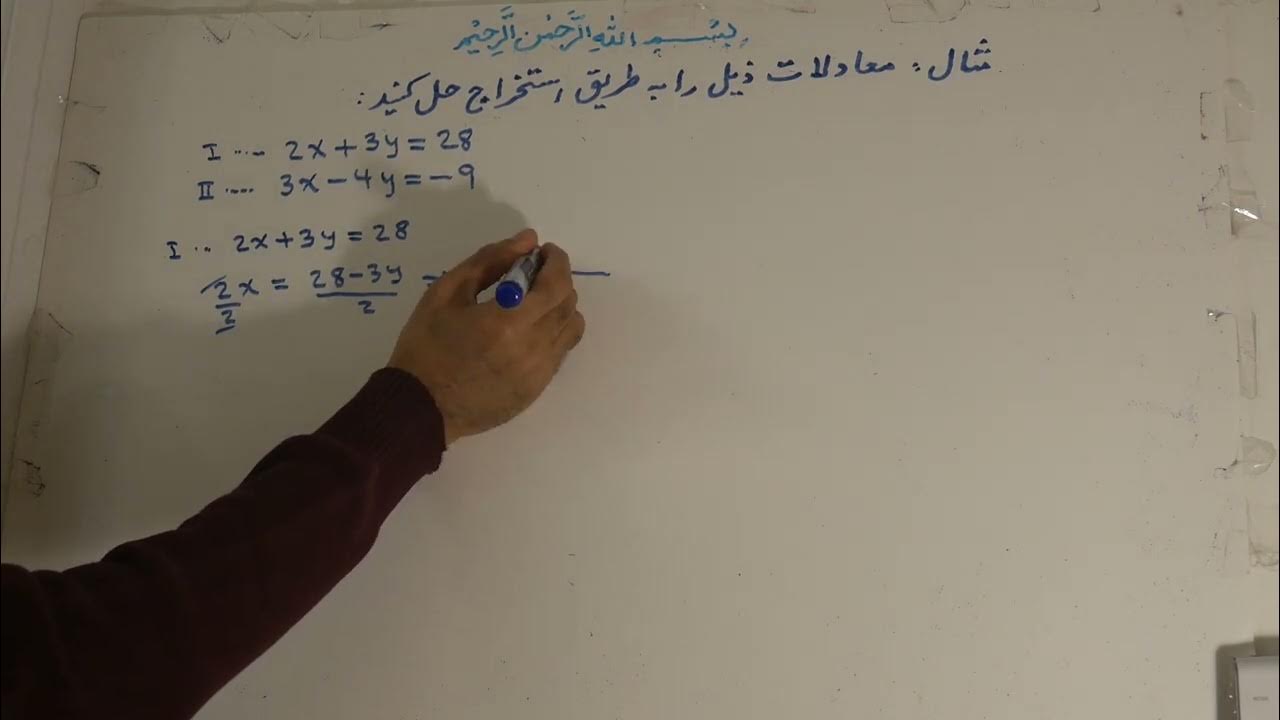 بِسْمِ اللهِ الرَّحْمٰنِ الرَّحِيْمِ
مثال: معادلات ذیل را به طریق استخراج حل کنید:
I .... 2x + 3y = 28
II .... 3x - 4y = -9
I ... 2x + 3y = 28
2x/2 = 28-3y/2